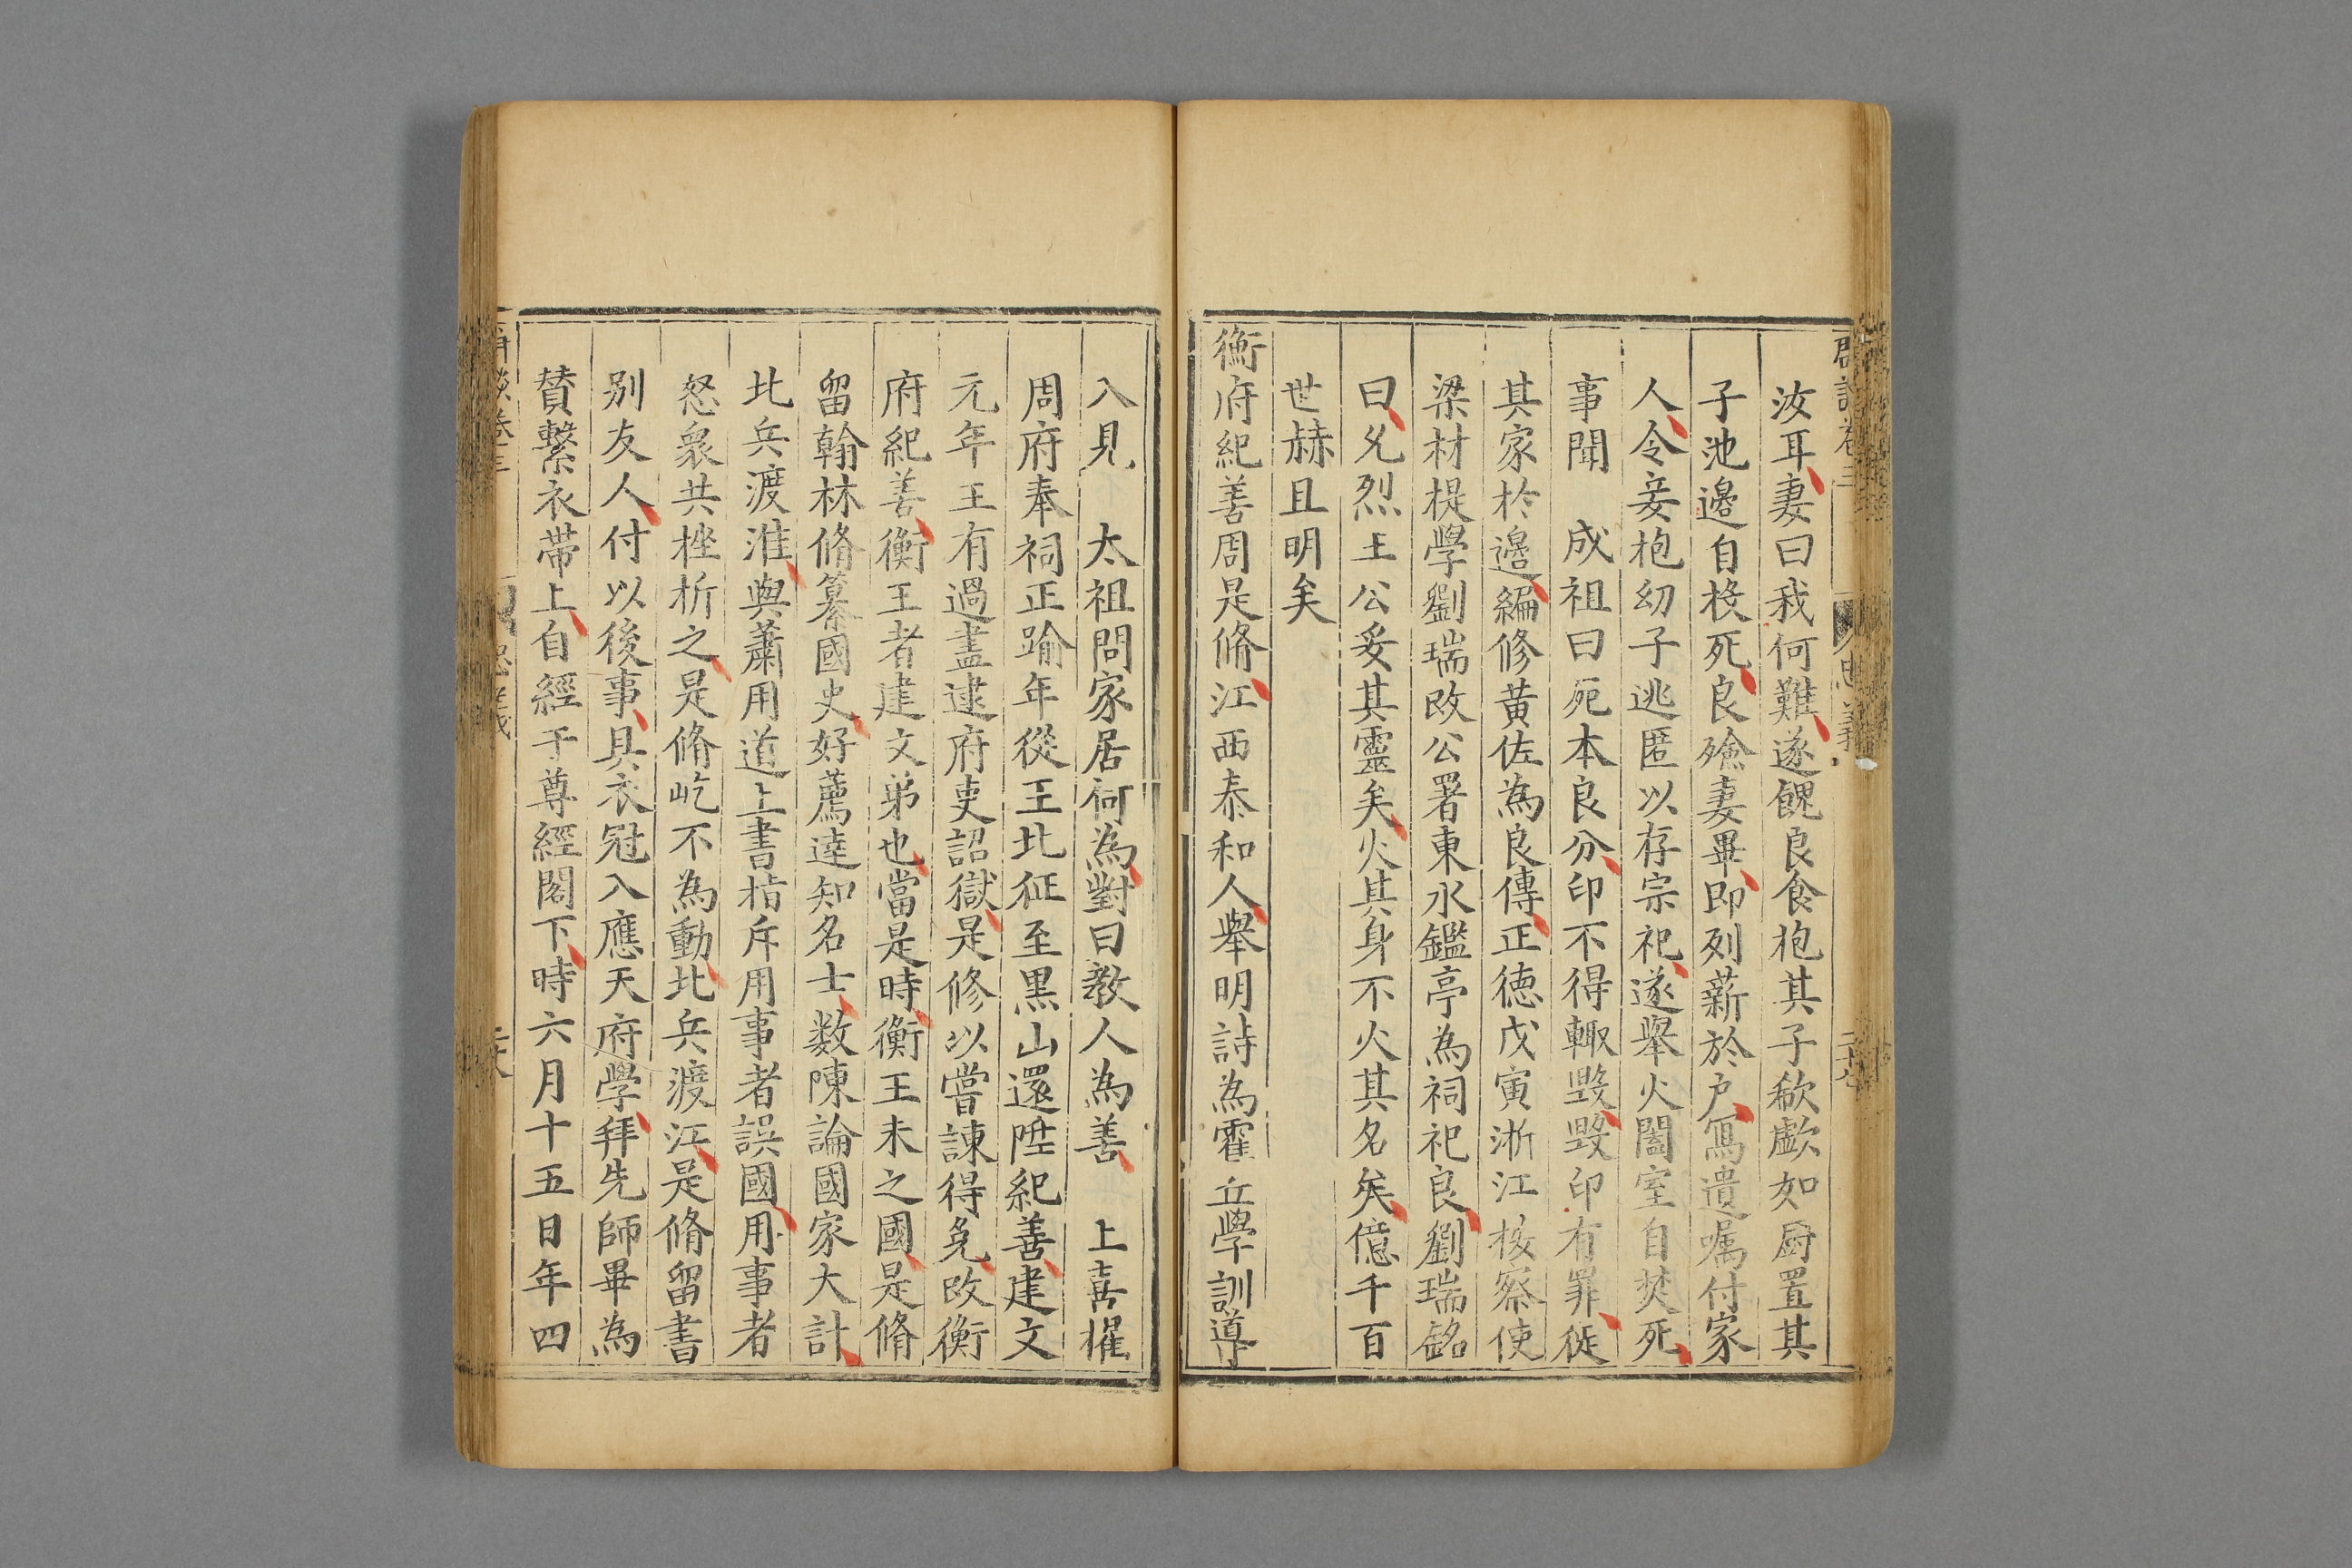 汝耳妻曰我何難遂餽良食抱其子欷歔如厨置其
子池邉自投死良殮妻畢即列薪於户寫遺嘱付家
人令妾抱幼子逃匿以存宗祀遂舉火闔室自焚死
事聞　成祖曰死本良分印不得輙毀毀印有罪徙
其家於邉編修黄佐為良傳正徳戊寅浙江按察使
梁材提學劉瑞改公署東水鑑亭為祠祀良劉瑞銘
曰烈王公妥其靈矣火其身不火其名矣億千百
世赫且明矣
衡府紀善周是脩江西泰和人舉明詩為霍丘學訓導
入見　太祖問家居何為對曰教人為善　上喜擢
周府奉祠正踰年從王北征至黒山還陞紀善建文
元年王有過盡逮府吏詔獄是修以嘗諫得免改衡
府紀善衡王者建文弟也當是時衡王未之國是脩
留翰林脩纂國史好薦達知名士数陳論國家大計
北兵渡淮與蕭用道上書指斥用事者誤國用事者
怒衆共挫折之是脩屹不為動北兵渡江是脩留書
别友人付以後事具衣冠入應天府學拜先師畢為
賛繫衣帶上自經于尊經閣下時六月十五日年四